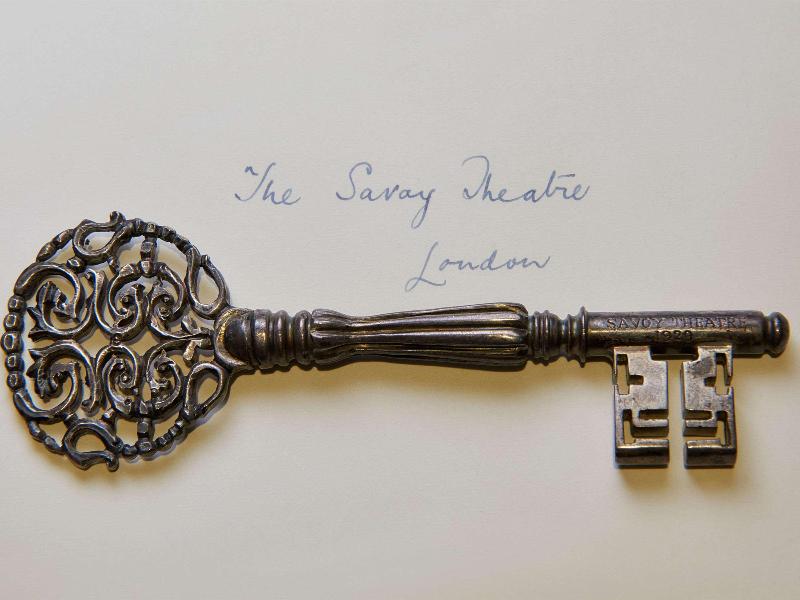 The Savoy Theatre
London
SAVOY THEATRE
1929